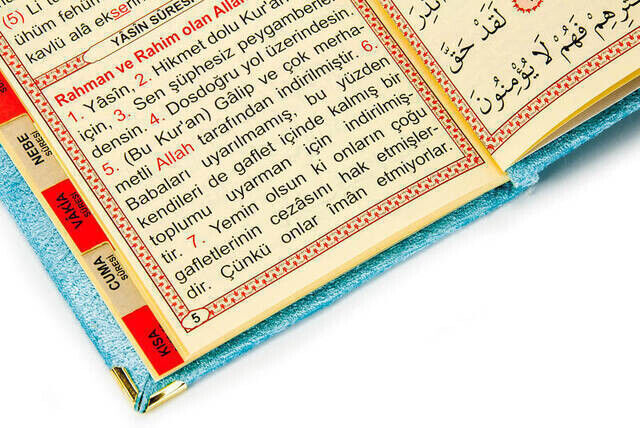 (5) Li
ühüm fehüm
kavlü alâ ekserihim
YÂSİN SURESİ
Rahman ve Rahim olan Allah
1. Yâsîn, 2. Hikmet dolu Kur'an
için, 3. Sen şüphesiz peygamberler
densin. 4. Dosdoğru yol üzerindesin.
5. (Bu Kur'an) Gâlip ve çok merha-
metli Allah tarafından indirilmiştir. 6.
Babaları uyarılmamış, bu yüzden
kendileri de gaflet içinde kalmış bir
toplumu uyarman için indirilmiş-
tir. 7. Yemin olsun ki onların çoğu
gafletlerinin cezâsını hak etmişler-
dir. Çünkü onlar imân etmiyorlar.
5
NEBE
SÛRESİ
VÂKIA
SÛRESİ
CUMA
SÛRESİ
KISA
لَقَدْ حَقَّ
فَهُمْ لَا يُؤْمِنُونَ